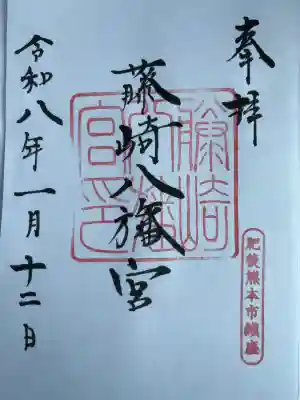 奉拝
肥後熊本市鎮座
藤崎八旛宮
藤崎八旛宮印
令和八年一月十二日